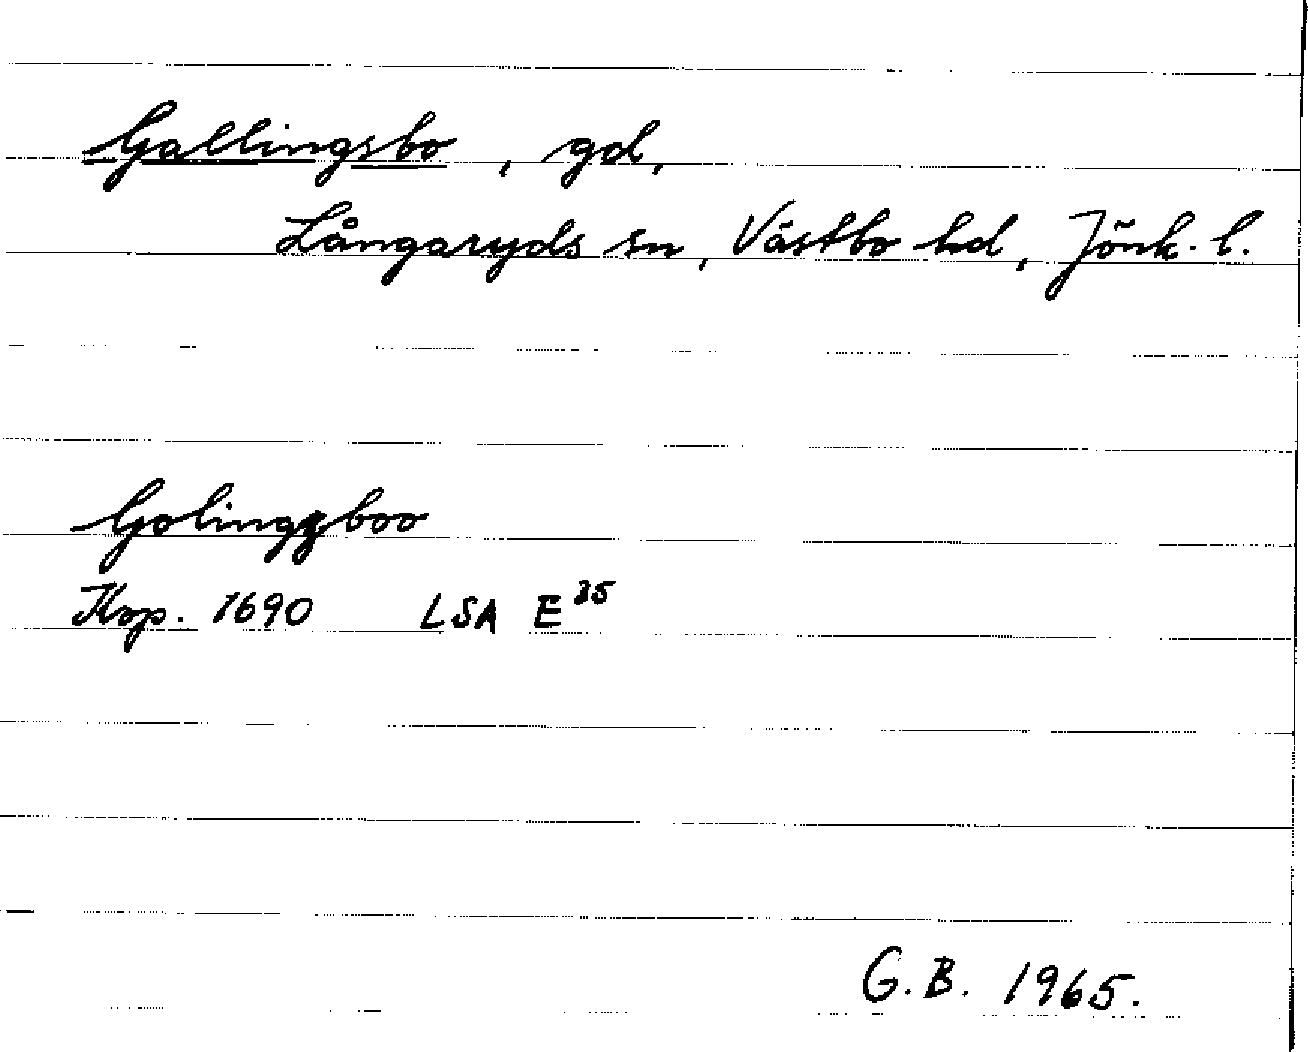 Gallingsbo, gd,
Långaryds sn, Västbo hd, Jönk. l.
Golingzboo
Ksp. 1690 LSA E 35
G.B. 1965.